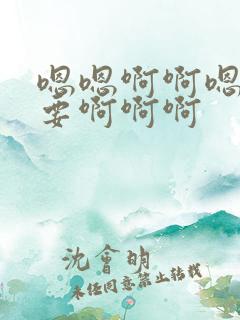 嗯嗯啊啊嗯
要啊啊啊
沈会明
未经同意禁止转载